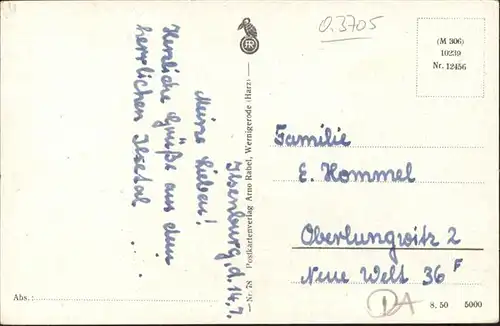 Ilsenburg, d. 14.7.
Meine Lieben!
Herzliche Grüße aus dem
herrlichen Ilsetal
Abs.:
Nr. 78 Postkartenverlag Arno Rabel, Wernigerode (Harz)
0.3705
(M 306)
10239
Nr. 12456
Familie
E. Hommel
Oberlungwitz 2
Neue Welt 36 F
DA
8. 50 5000